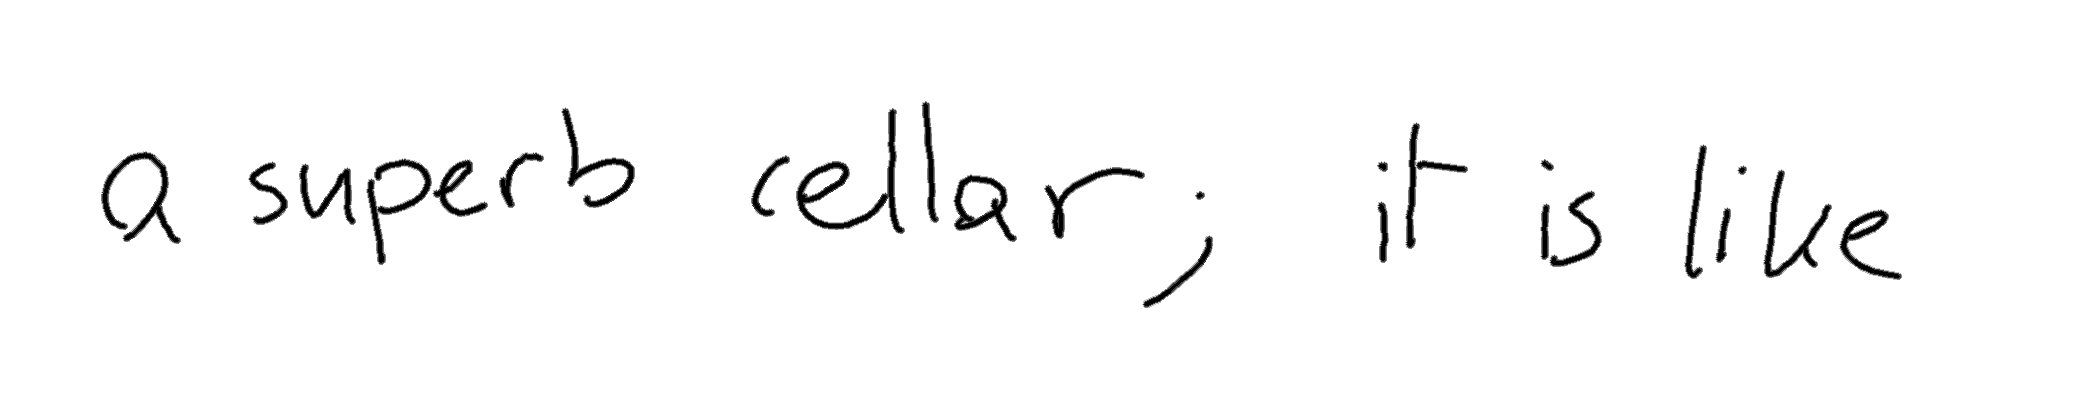 a superb cellar; it is like